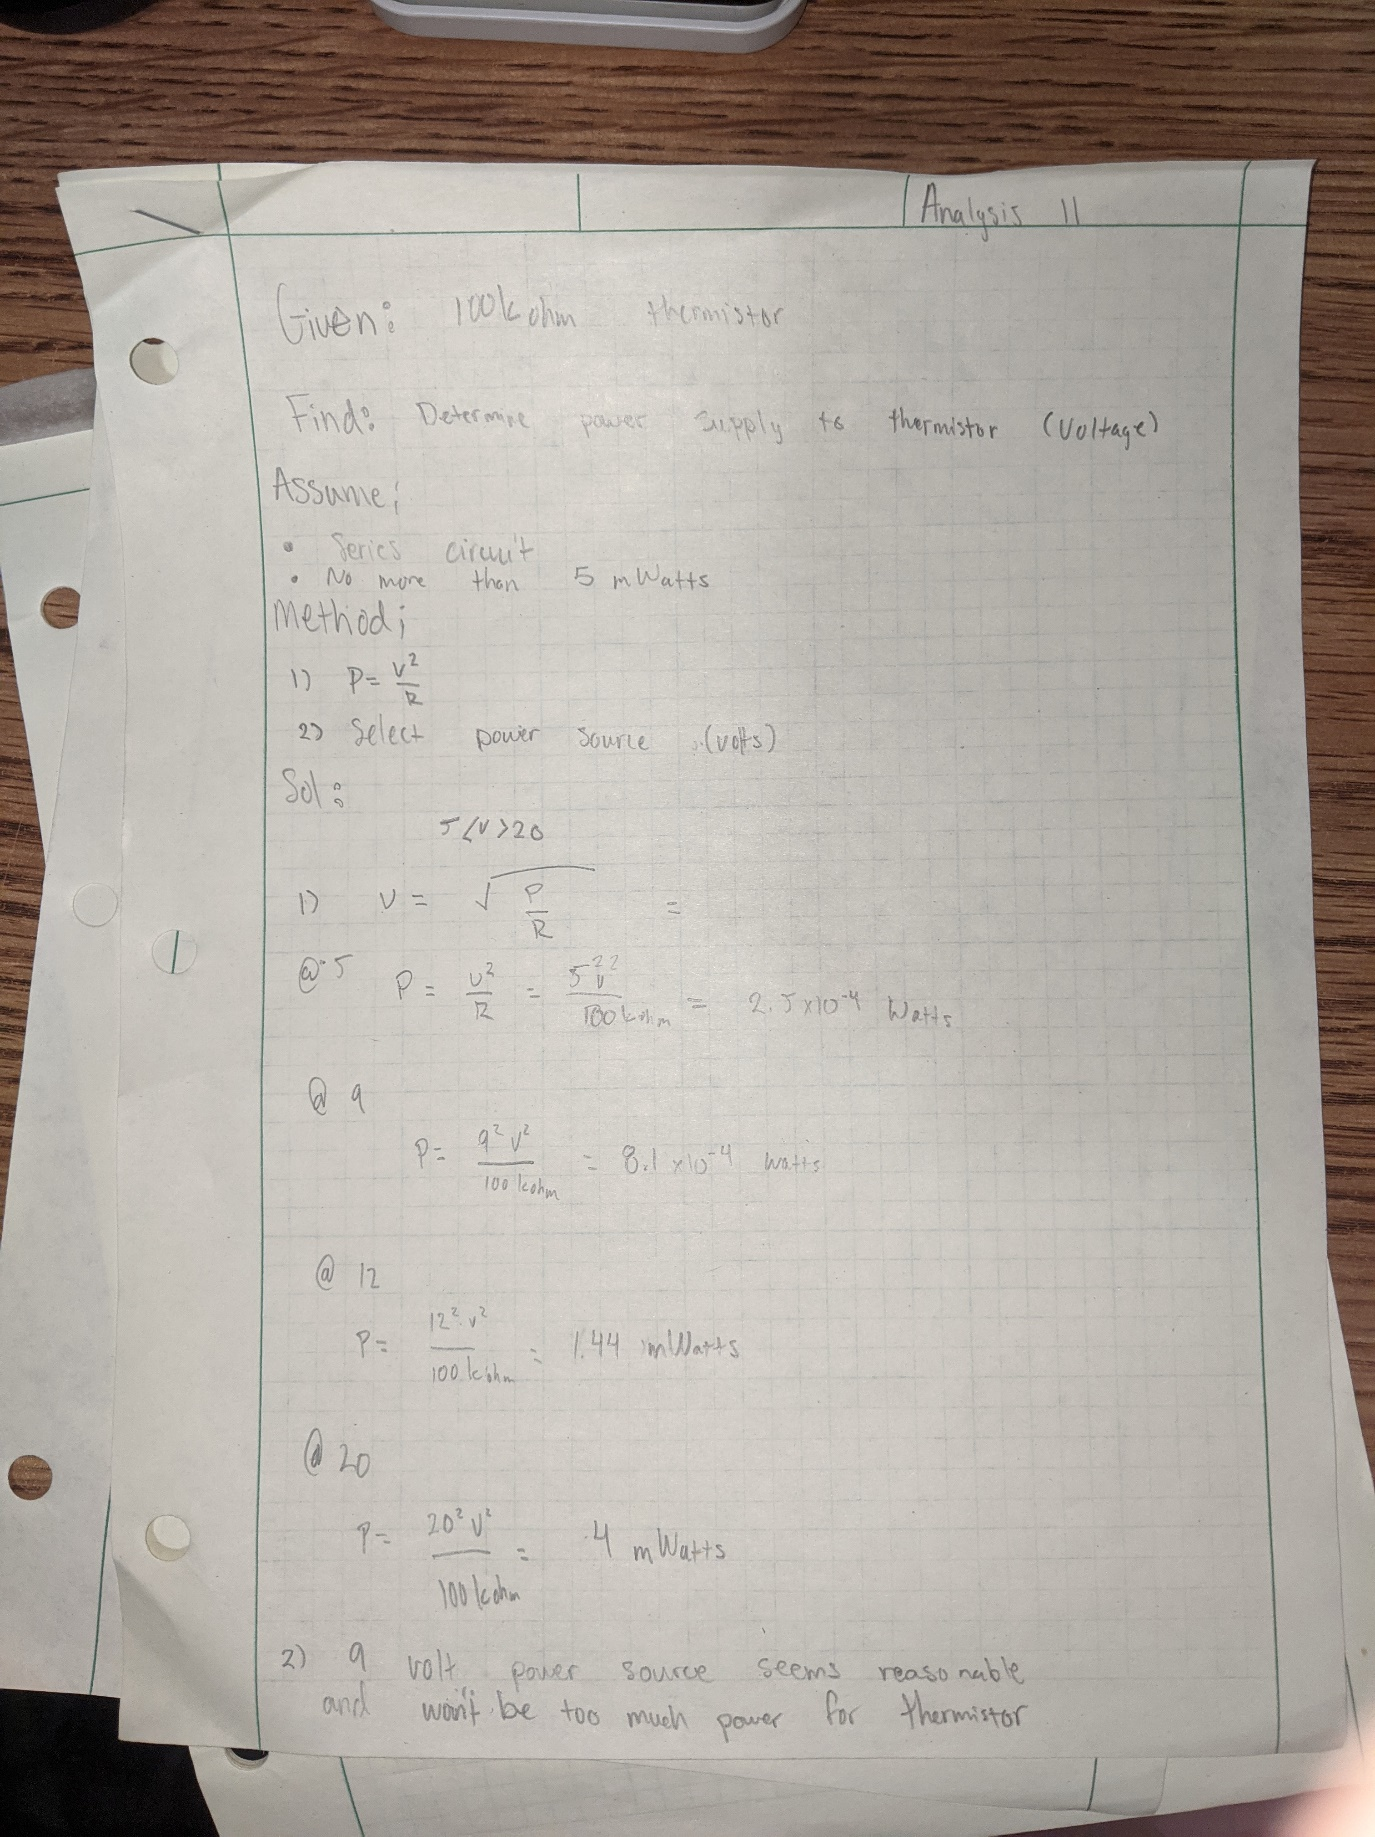 Analysis 11
Given: 100k ohm thermistor
Find: Determine power supply to thermistor (voltage)
Assume;
• Series circuit
• No more than 5 mWatts
Method;
1) P = V²/R
2) Select power source (volts)
Sol:
5<V>20
1) V = √(P/R) =
@ 5 P = V²/R = 5² V²/100k ohm = 2.5 x10⁻⁴ Watts
@ 9
P = 9² V²/100 kohm = 8.1 x10⁻⁴ watts
@ 12
P = 12² V²/100 kohm = 1.44 mWatts
@ 20
P = 20² V²/100 kohm = 4 mWatts
2) 9 volt power source seems reasonable
and won't be too much power for thermistor